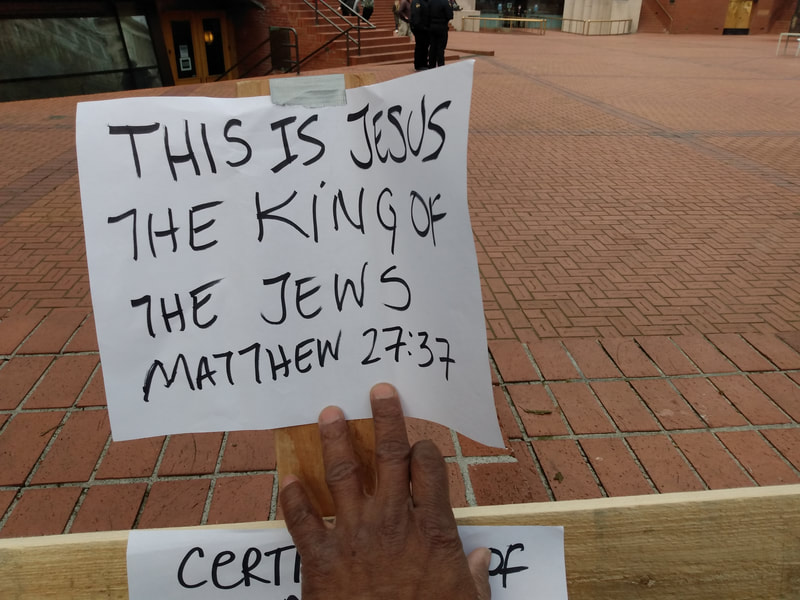 THIS IS JESUS
THE KiNG OF
THE JEWS
MATTHEW 27:37
OF